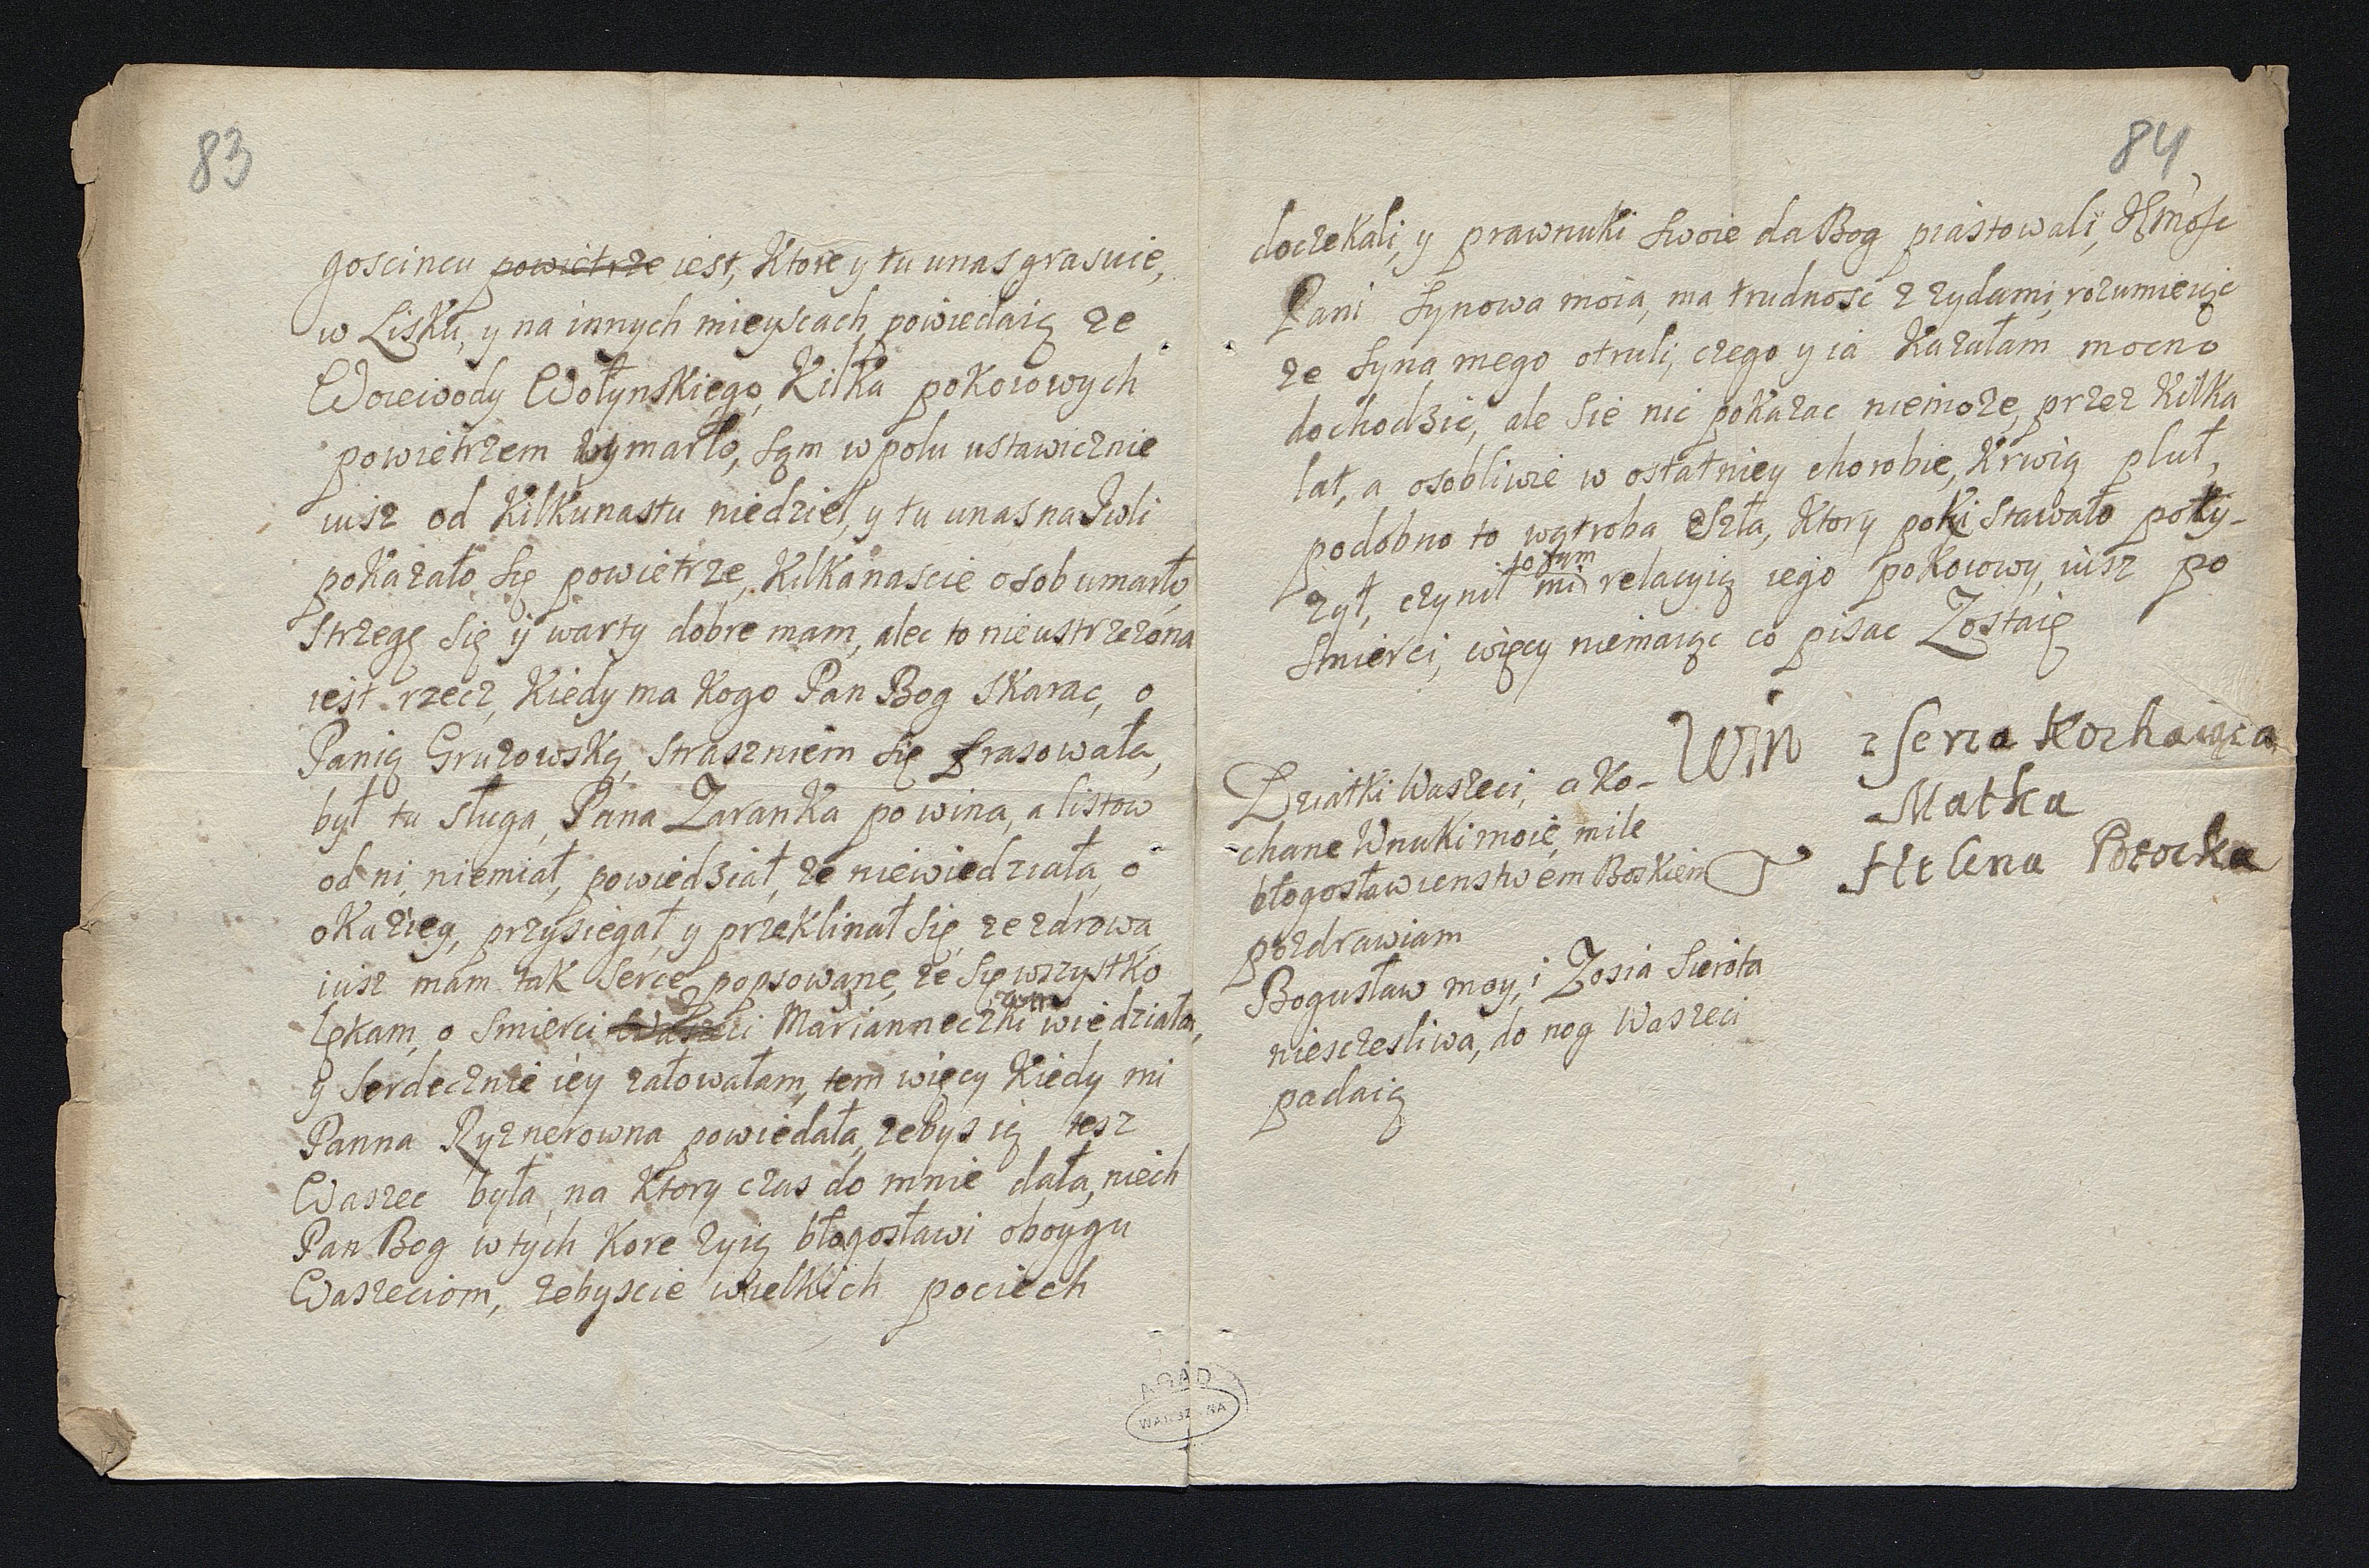 83
goscincu powietrze iest, Ktore y tu unas grasuie,
w Lisku, y na innych mieyscach, powiedaią ze
Woiewody Wołynskiego, Kilka pokoiowych
powietrzem wymarło, sąm w polu ustawicznie
iusz od Kilkunastu niedziel, y tu unas na Iwli
pokazało się powietrze, Kilkanascie osob umarło,
strzegę się y warty dobre mam, alec to nieustrzezona
iest rzecz, Kiedy ma Kogo Pan Bog skarac, o
Panią Gruzowską, straszniem się frasowała,
był tu sługa, Pana Zaranka po wina, a listow
od ni, niemiał, powiedział, ze niewiedziała, o
okaziey, przysiegał, y przeklinał się, ze zdrowa
iusz mam tak serce popsowane, ze się wszystko
lękam, o smierci Waszeci Marianneczki wiedziała,
y serdecznie iey załowałam, tem więcy Kiedy mi
Panna Ryznerowna powiedała, zebys ią tesz
Waszec była, na Ktory czas do mnie dała, niech
Pan Bog w tych Kore zyią błogosławi oboygu
Waszeciom, zebyscie wielkich pociech
84
doczekali, y prawnuki swoie da Bog piastowali, Jmosc
Pani synowa moia, ma trudnosc z zydami, rozumieiąc
ze syna mego otruli, czego y ia Kazałam mocno
dochodzic, ale sie nic pokazac niemoze, przez Kilka
lat, a osobliwie w ostatniey chorobie, Krwią pluł,
podobno to wątroba szła, Ktory poki stawało poty-
zył, czynił mi o tym relacyią iego pokoiowy, iusz po
smierci, więcy niemaiąc co pisac Zostaię
WM z serca Kochaiąca
Matka
Helena Potocka
Dziatki Waszeci, a Ko-
chane Wnuki moie, mile
błogosławienstwem Boskiem
pozdrawiam
Bogusław moy, i Zosia sierota
niesczesliwa, do nog Waszeci
padaią
AGAD
WARSZAWA